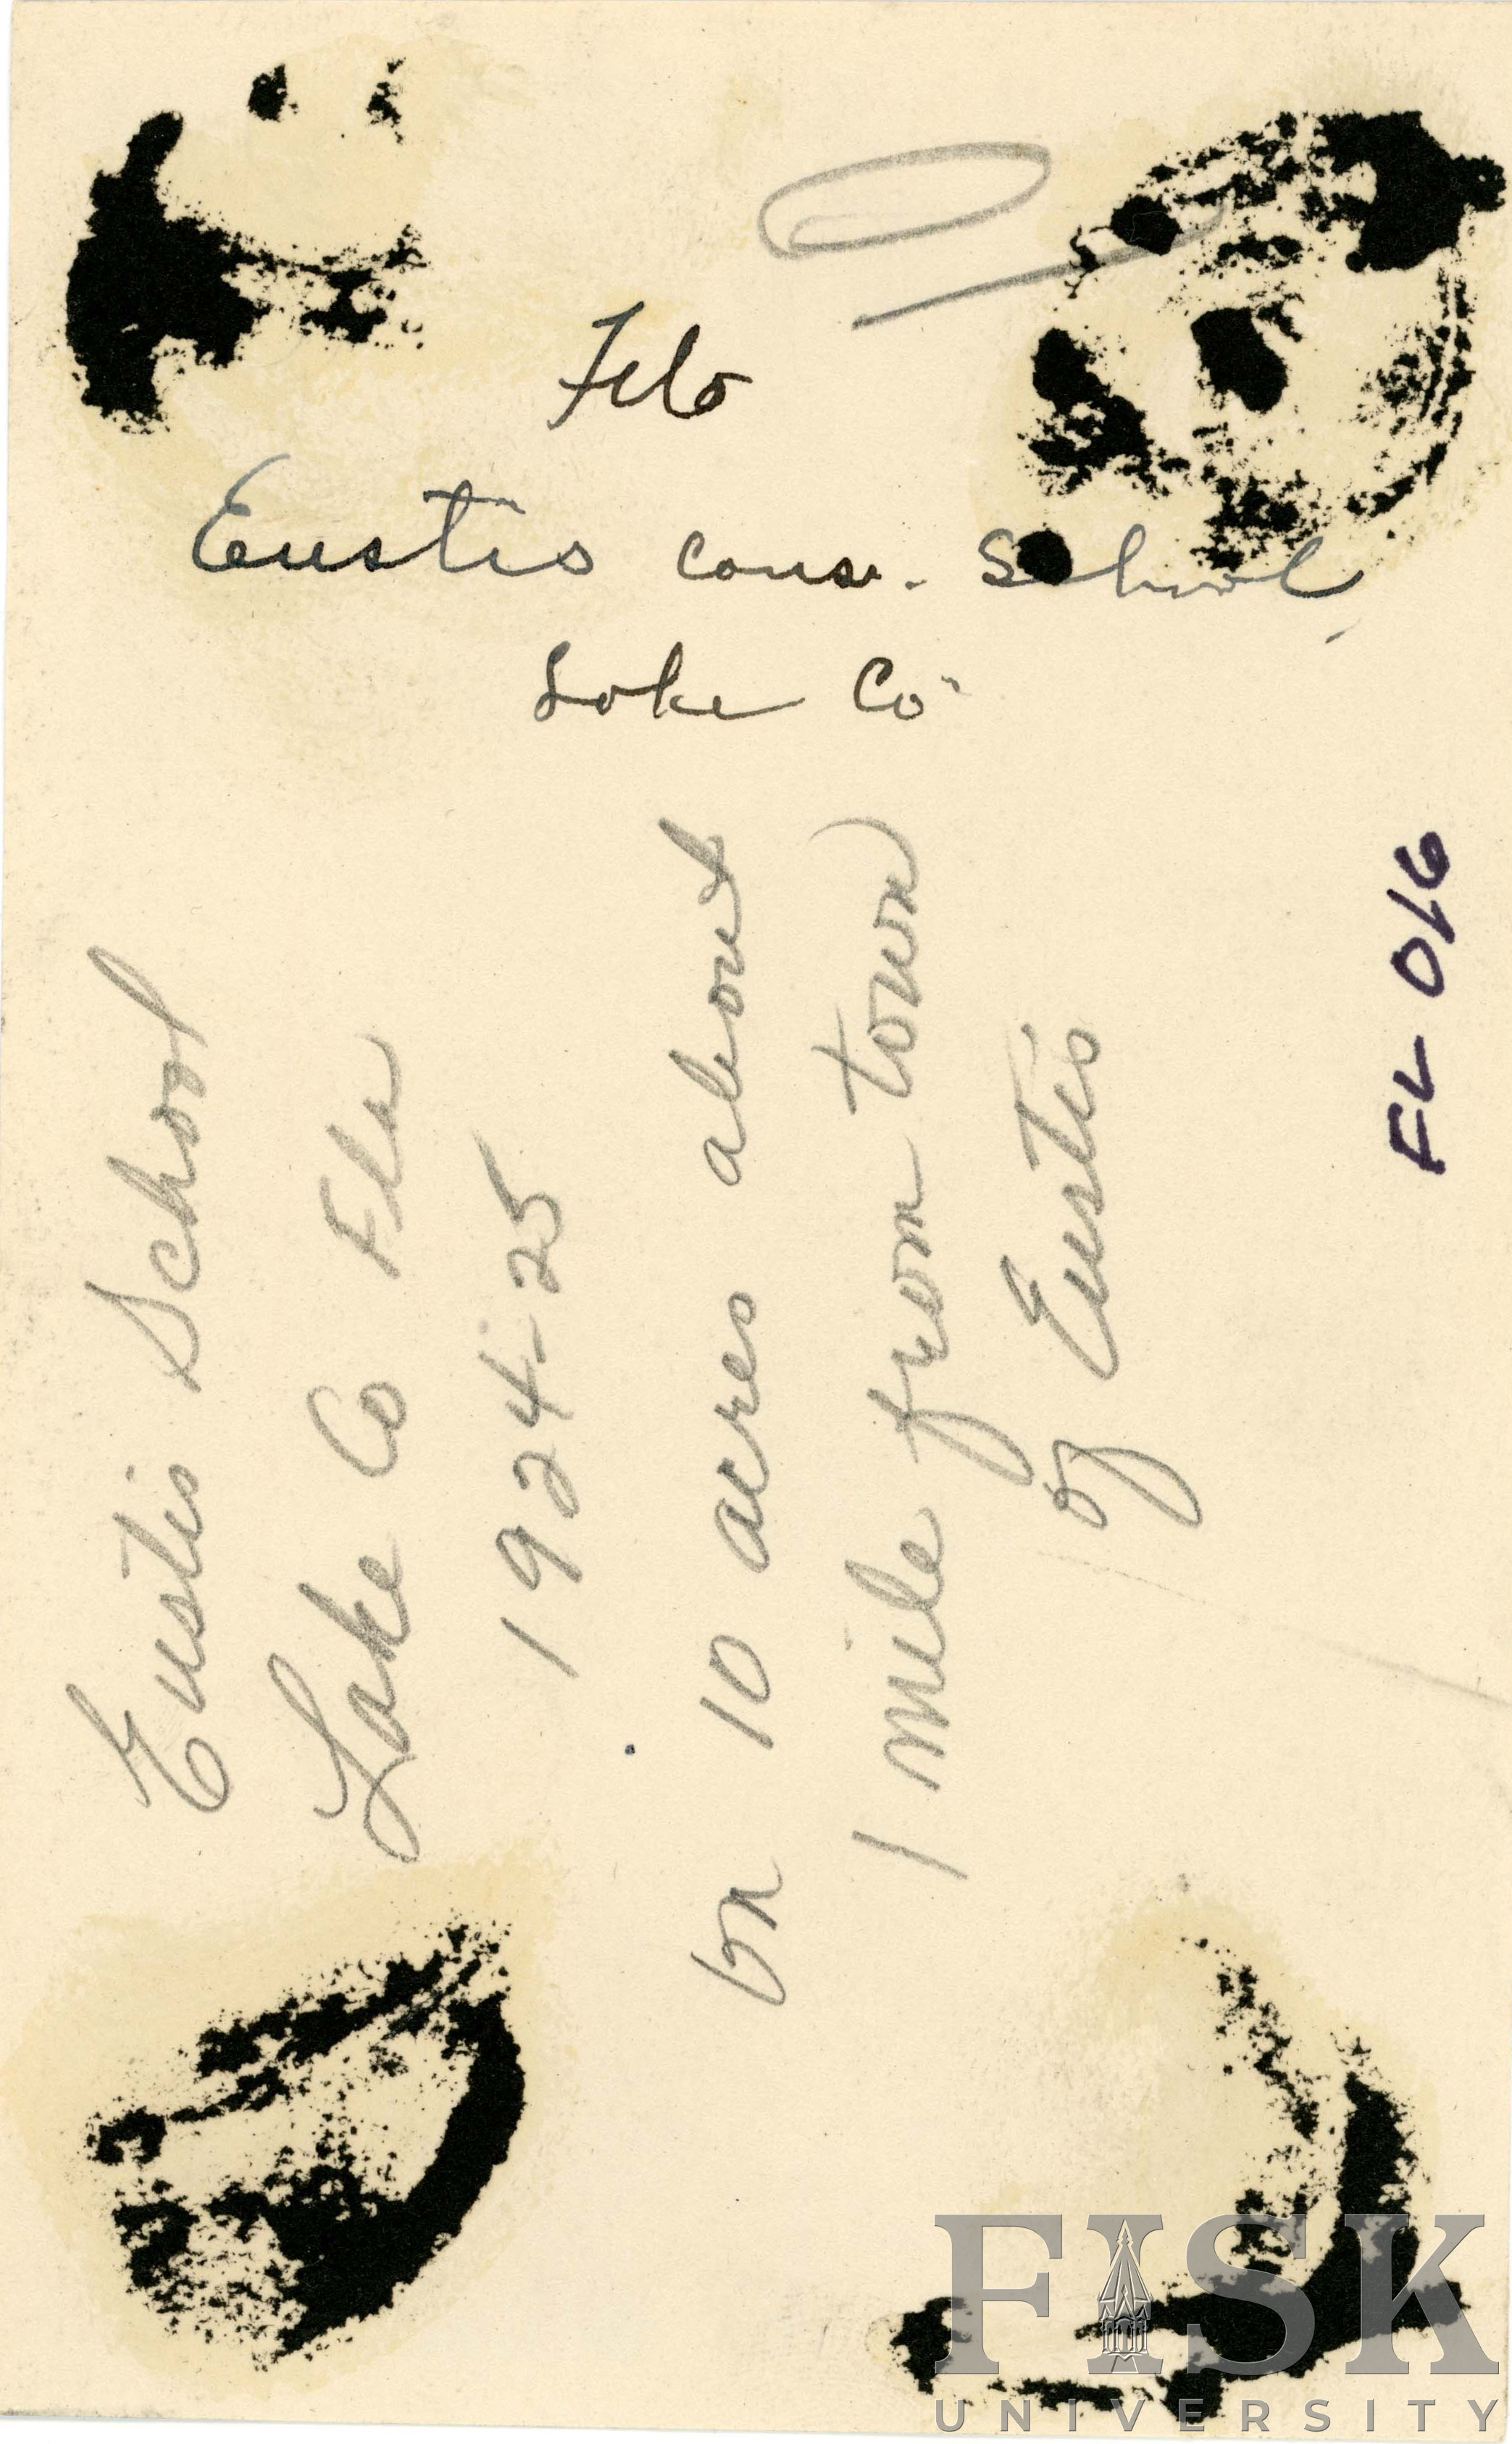 Fla
Eustis Cons. School,
Lake Co.
Eustis School
Lake Co Fla
1924-25
on 10 acres about
1 mile from town
of Eustis
FL 016
FISK
UNIVERSITY